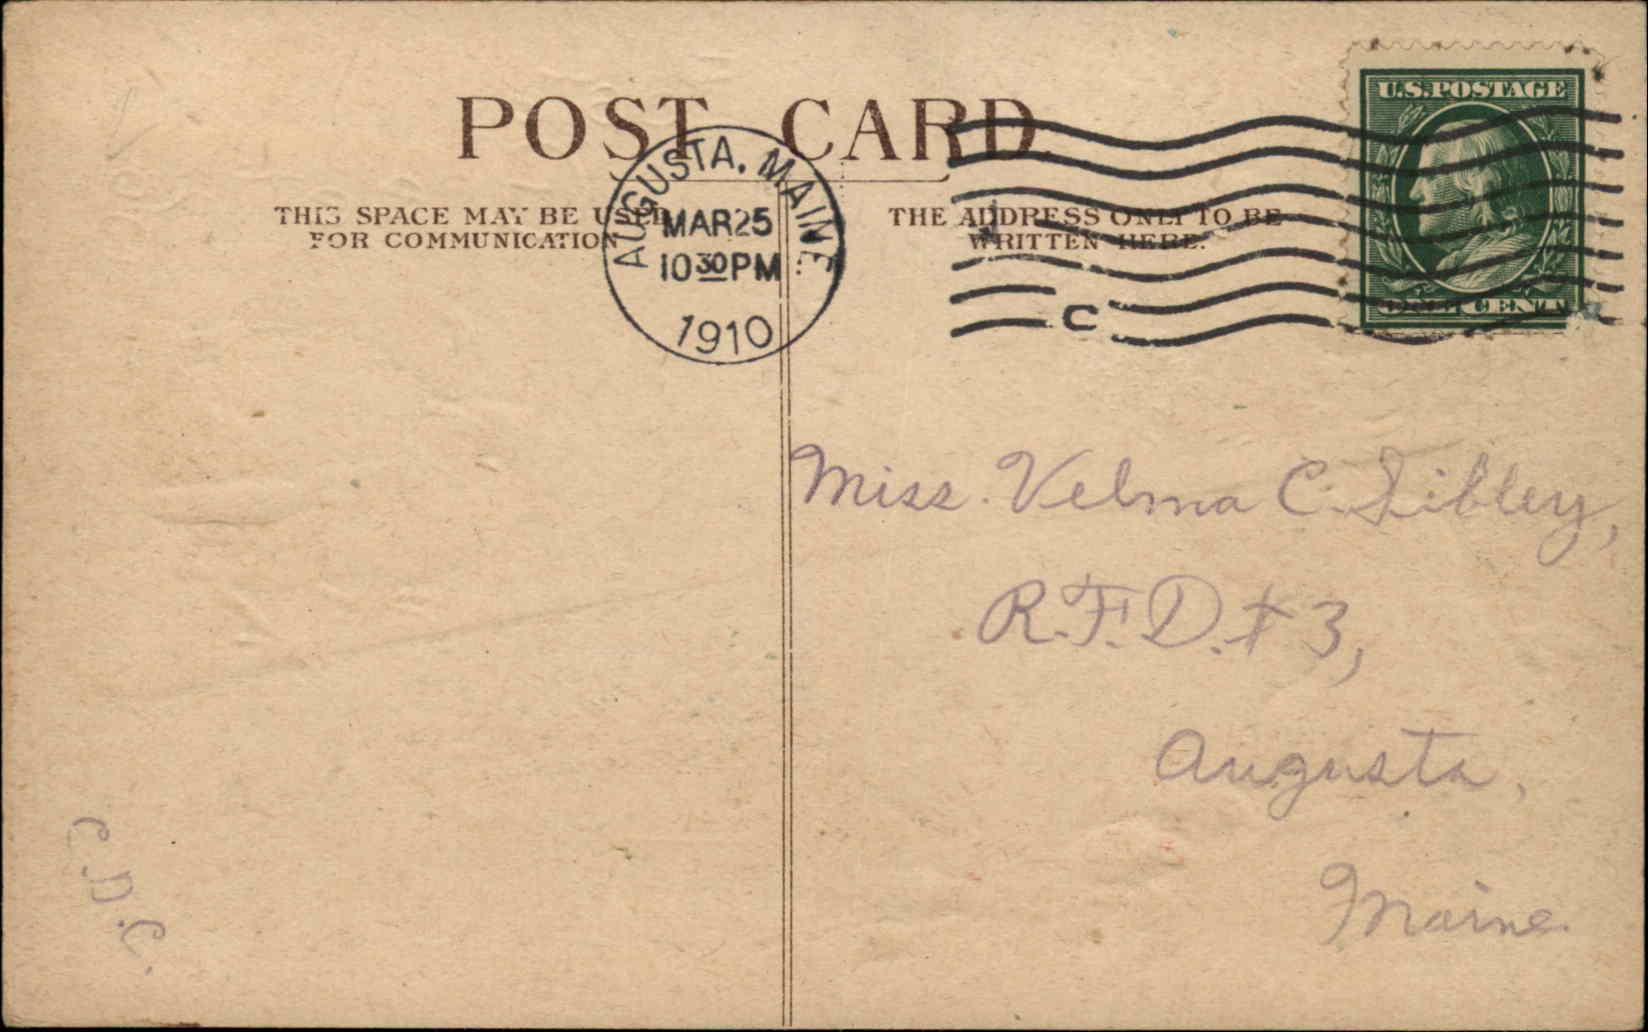 POST CARD
THIS SPACE MAY BE USED
FOR COMMUNICATION
THE ADDRESS ONLY TO BE
WRITTEN HERE.
AUGUSTA, MAINE
MAR 25
10 30 PM
1910
C
U.S. POSTAGE
ONE CENT
Miss. Velma C. Sibley,
R.F.D. # 3,
Augusta,
Maine.
C.D.C.